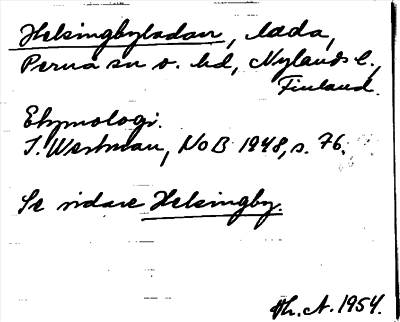 Helsingbyladan, lada,
Perna sn o. hd, Nylands l.,
Finland.
Etymologi.
I. Westman, NoB 1948, s. 76.
Se vidare Helsingby.
Th. A. 1954.